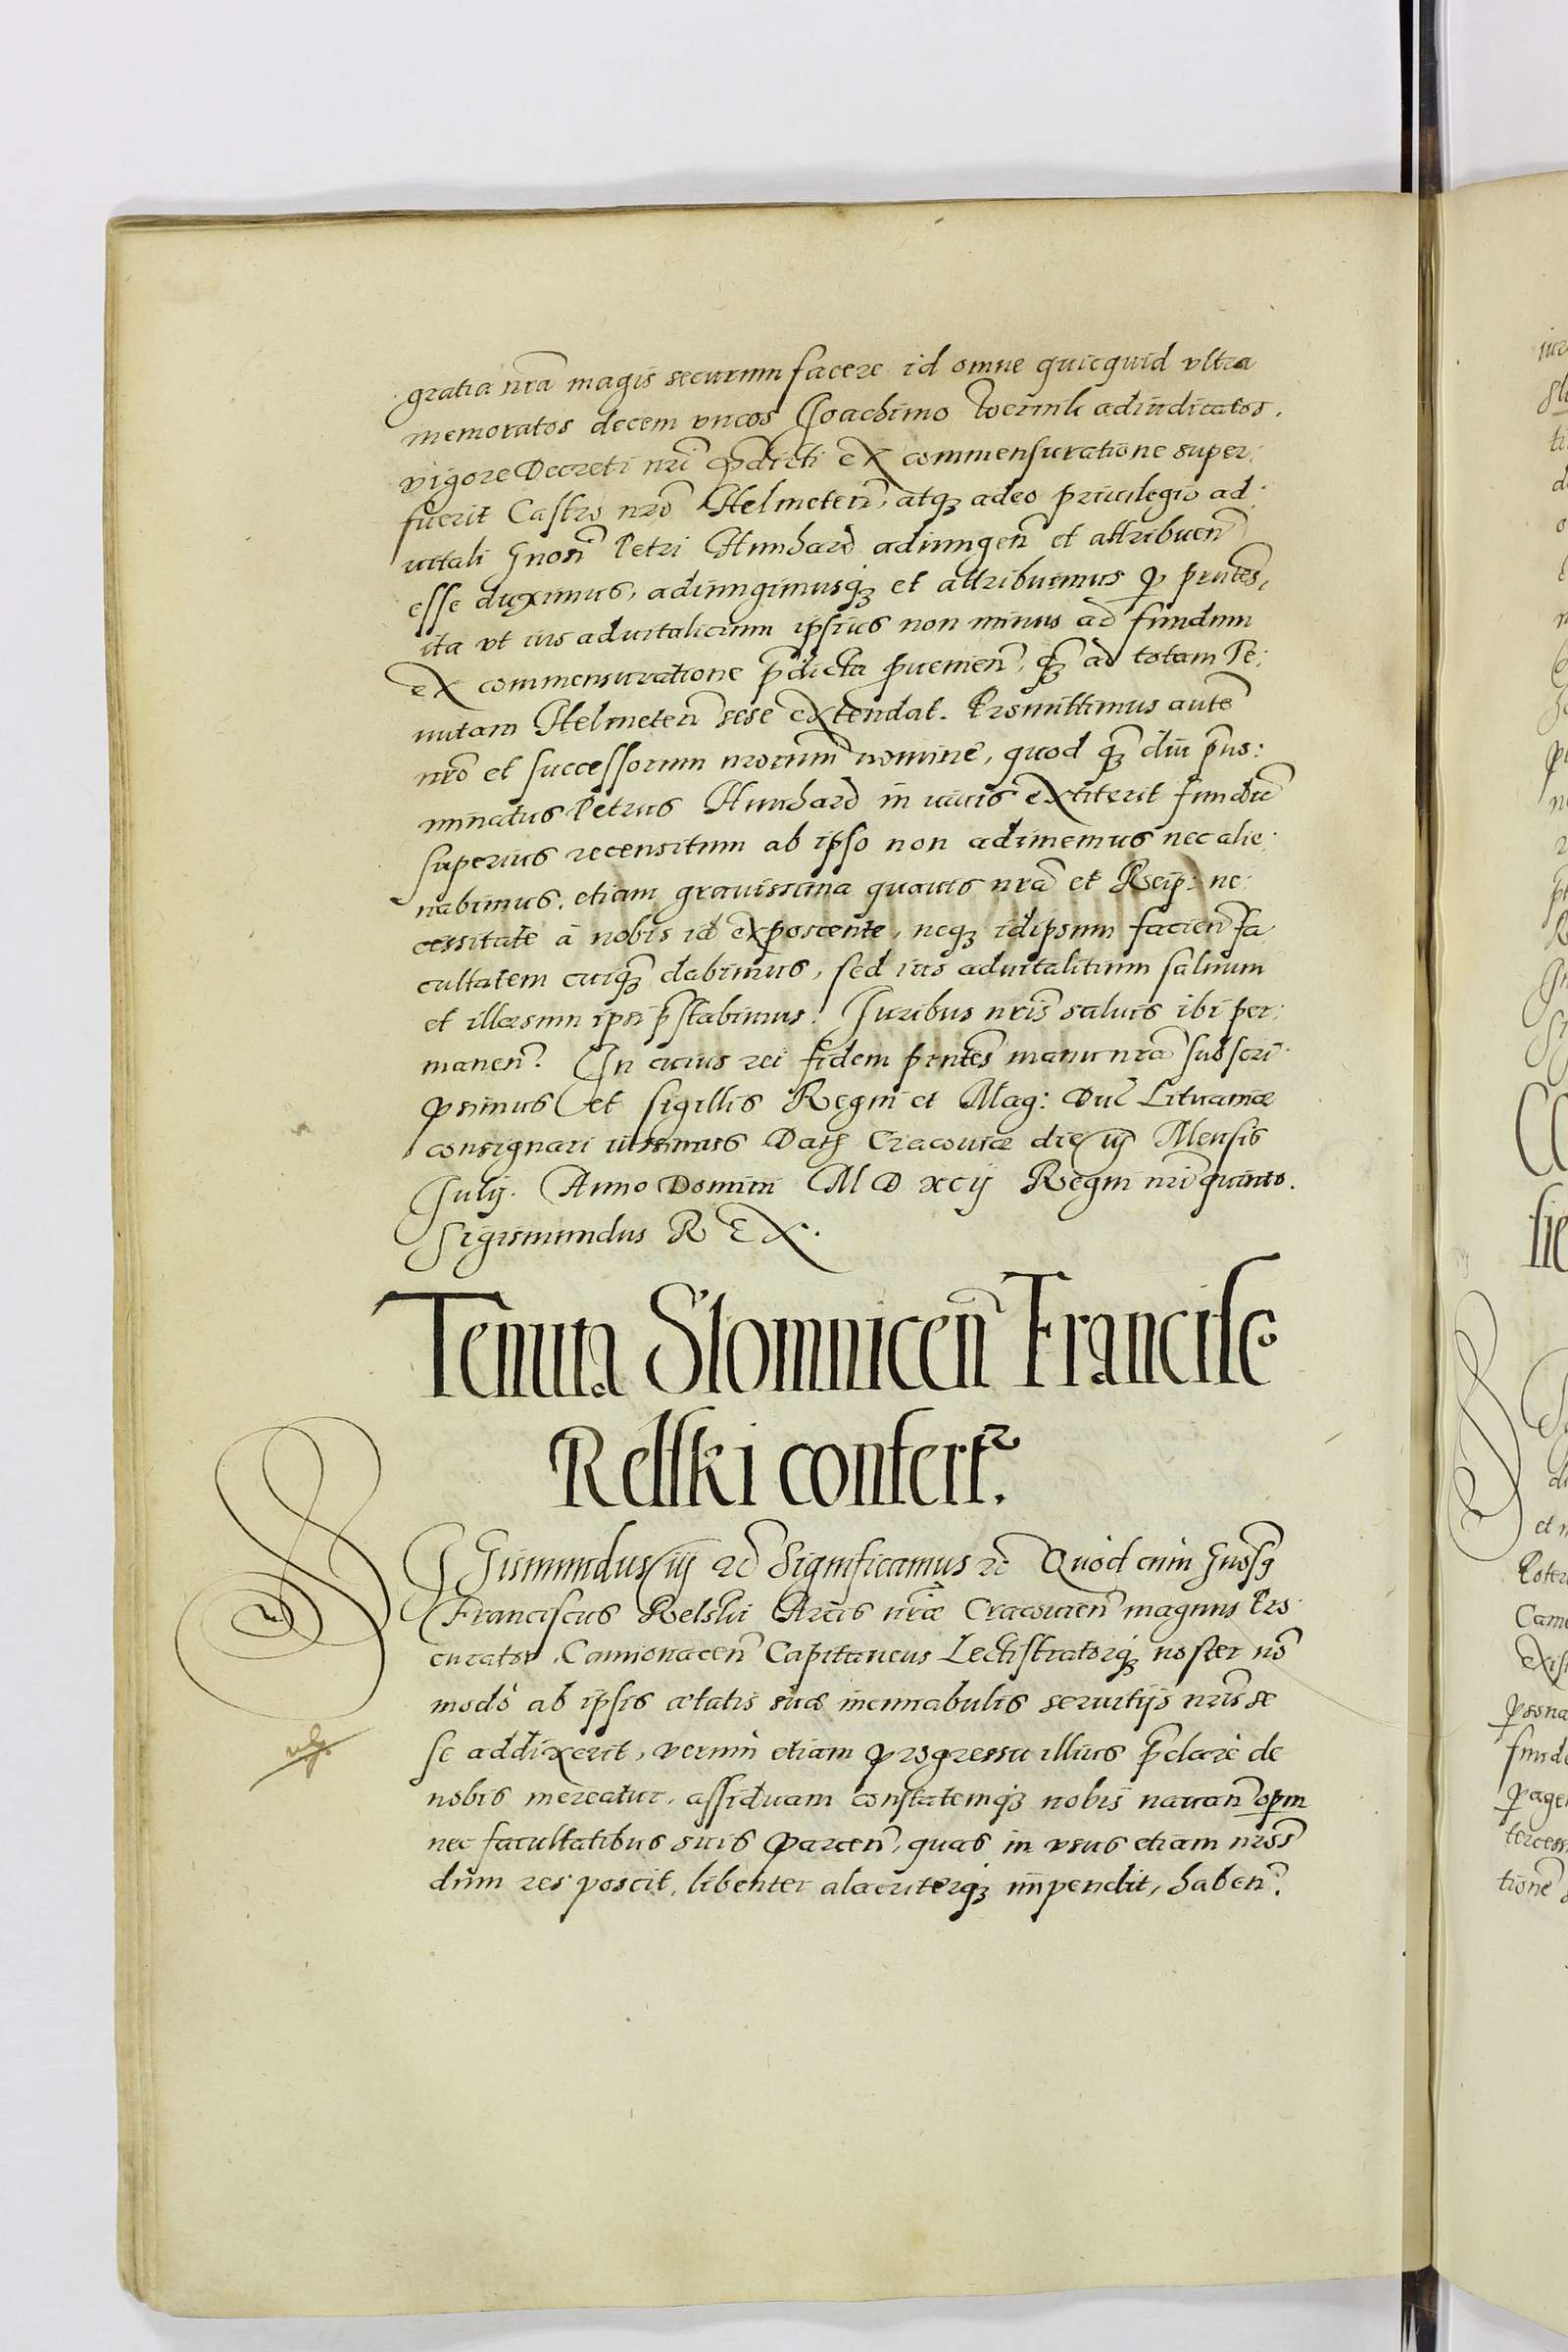 gratia nrã magis securum facere id omne quicquid vltra
memoratos decem vncos Joachimo Wermk adiudicatos.
vigore Decreti nri̅ p̃dicti ex commensuratione super:
fuerit Castro nrõ Helmeten̅, atq̃ adeo priuilegio ad:
uitali Gnosi̅ Petri Hunhard adiungen̅ et attribuen̅
esse duximus, adiungimusq̃ et attribuimus p̱ prntes̅,
ita vt ius aduitalicium ipsius non minus ad fundum
ex commensuratione p̃dicta p̱uenien̅, q̃ ad totam Te:
nutam Helmeten̅ sese extendat. Promittimus autẽ
nrõ et successorum nrorum̅ nomine, quod q̃ diu p̃no:
minatus Petrus Hunhard in viuis extiterit fundũ
superius recensitum ab ipso non adimemus nec alie:
nabimus, etiam grauissima quauis nrã et Reip: ne:
cessitate à nobis id exposcente, neq̃ idipsum facien̅ fa:
cultatem cuiq̃ dabimus, sed ius aduitalitium saluum
et illæsum ipsi p̃stabimus. Juribus nris̅ saluis ibi per:
manen̅. In cuius rei fidem prntes̅ manu nrã subscri:
psimus et sigillis Regni et Mag: Duc̅ Lituaniæ
consignari iussimus Dat̃ Cracouiæ die iij Mensis
Julij. Anno Domini M D xcij Regni nri̅ quinto.
Sigismundus R EX.
Tenuta Slomnicen̅ Francisco
Relski confert^r.
SIGismundus iij zc̅ Significamus zc̅ Quod cum Gnosg̅
Franciscus Relski Arcis nrǣ Cracouien̅ magnus Pro:
curator, Camionacen̅ Capitaneus Lectistratorq̃ noster nõ
modò ab ipsis ætatis suæ incunabulis seruitijs nris̅ se
se addixerit, verum etiam progressu illius p̃clarè de
nobis mereatur, assiduam constatemq̃ nobis nauan̅ op̱m
nec facultatibus suis parcen̅, quas in vsus etiam nros̅
dum res poscit, libenter alacriterq̃ impendit, haben̅.